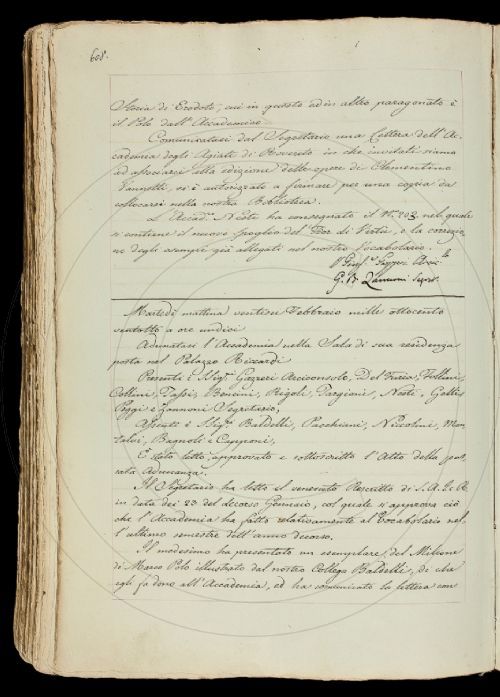 608.
Storia di Erodoto, cui in questo ed in altro paragonato è
il Polo dall' Accademico.
Comunicatasi dal Segretario una Lettera dell' Ac-
cademia degli Agiati di Rovereto in che invitati siamo
ad associarci alla edizione delle opere di Clementino
Vannetti, si è autorizzato a firmare per una copia da
collocarsi nella nostra Biblioteca.
L' Accad.º Nesti ha consegnato il N.º 202 nel quale
si contiene il nuovo spoglio del Fior di Virtù, e la correzio-
ne degli esempj già allegati nel nostro Vocabolario.
G. B. Zannoni Segr.
Martedì mattina ventisei Febbraio mille ottocento
ventotto a ore undici
Adunatasi l' Accademia nella Sala di sua residenza
posta nel Palazzo Riccardi
Presenti i Sig.ri Gazzeri Arciconsolo, Del Furia, Follini,
Collini, Tassi, Bencini, Rigoli, Targioni, Nesti, Gallizi
Poggi e Zannoni Segretario,
Assenti i Sig.ri Baldelli, Pacchiani, Niccolini, Mon-
talvi, Bagnoli e Capponi,
È stato letto, approvato e sottoscritto l' Atto della pas-
sata Adunanza.
Il Segretario ha letto il venerato Rescritto di S. A. I. e R.
in data dei 23 del decorso Gennaio, col quale si approva ciò
che l' Accademia ha fatto relativamente al Vocabolario nel-
l' ultimo semestre dell' anno decorso.
Il medesimo ha presentato un esemplare del Milione
di Marco Polo illustrato dal nostro Collega Baldelli, di che
egli fa dono all' Accademia, ed ha comunicato la lettera con